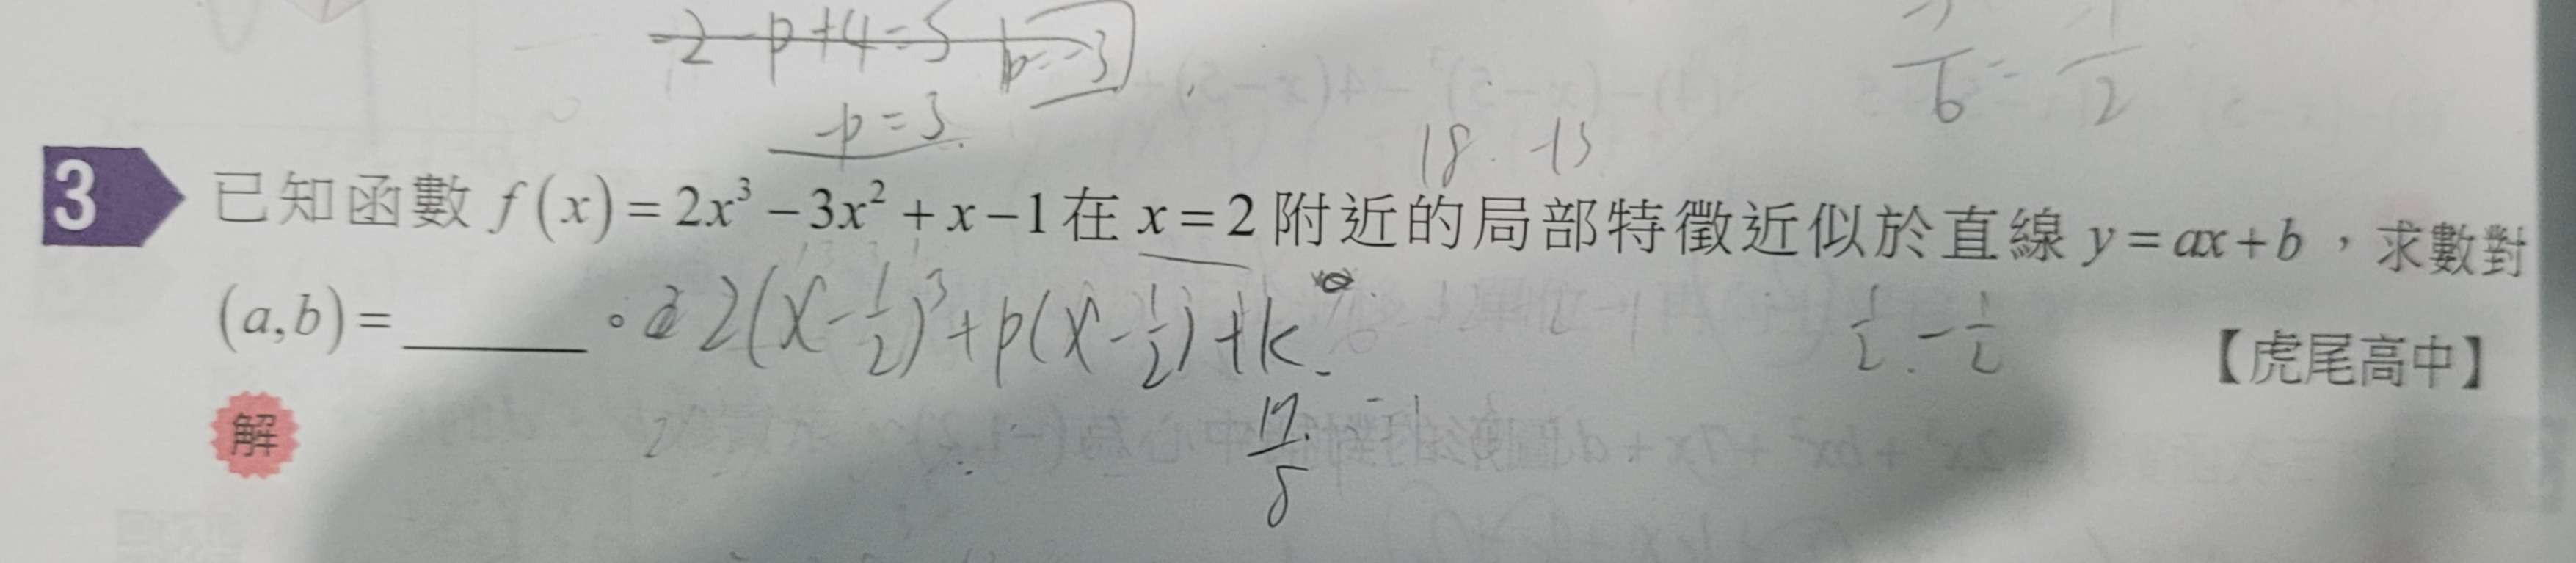 -2-p+4=5 p=-3
-p=3
6 = 2
18. -13
3 已知函數 f(x)=2x³-3x²+x-1在 x=2附近的局部特徵近似於直線 y=ax+b，求數對
(a,b)=______。 2(x-1/2)³+p(x-1/2)+k
【虎尾高中】
解